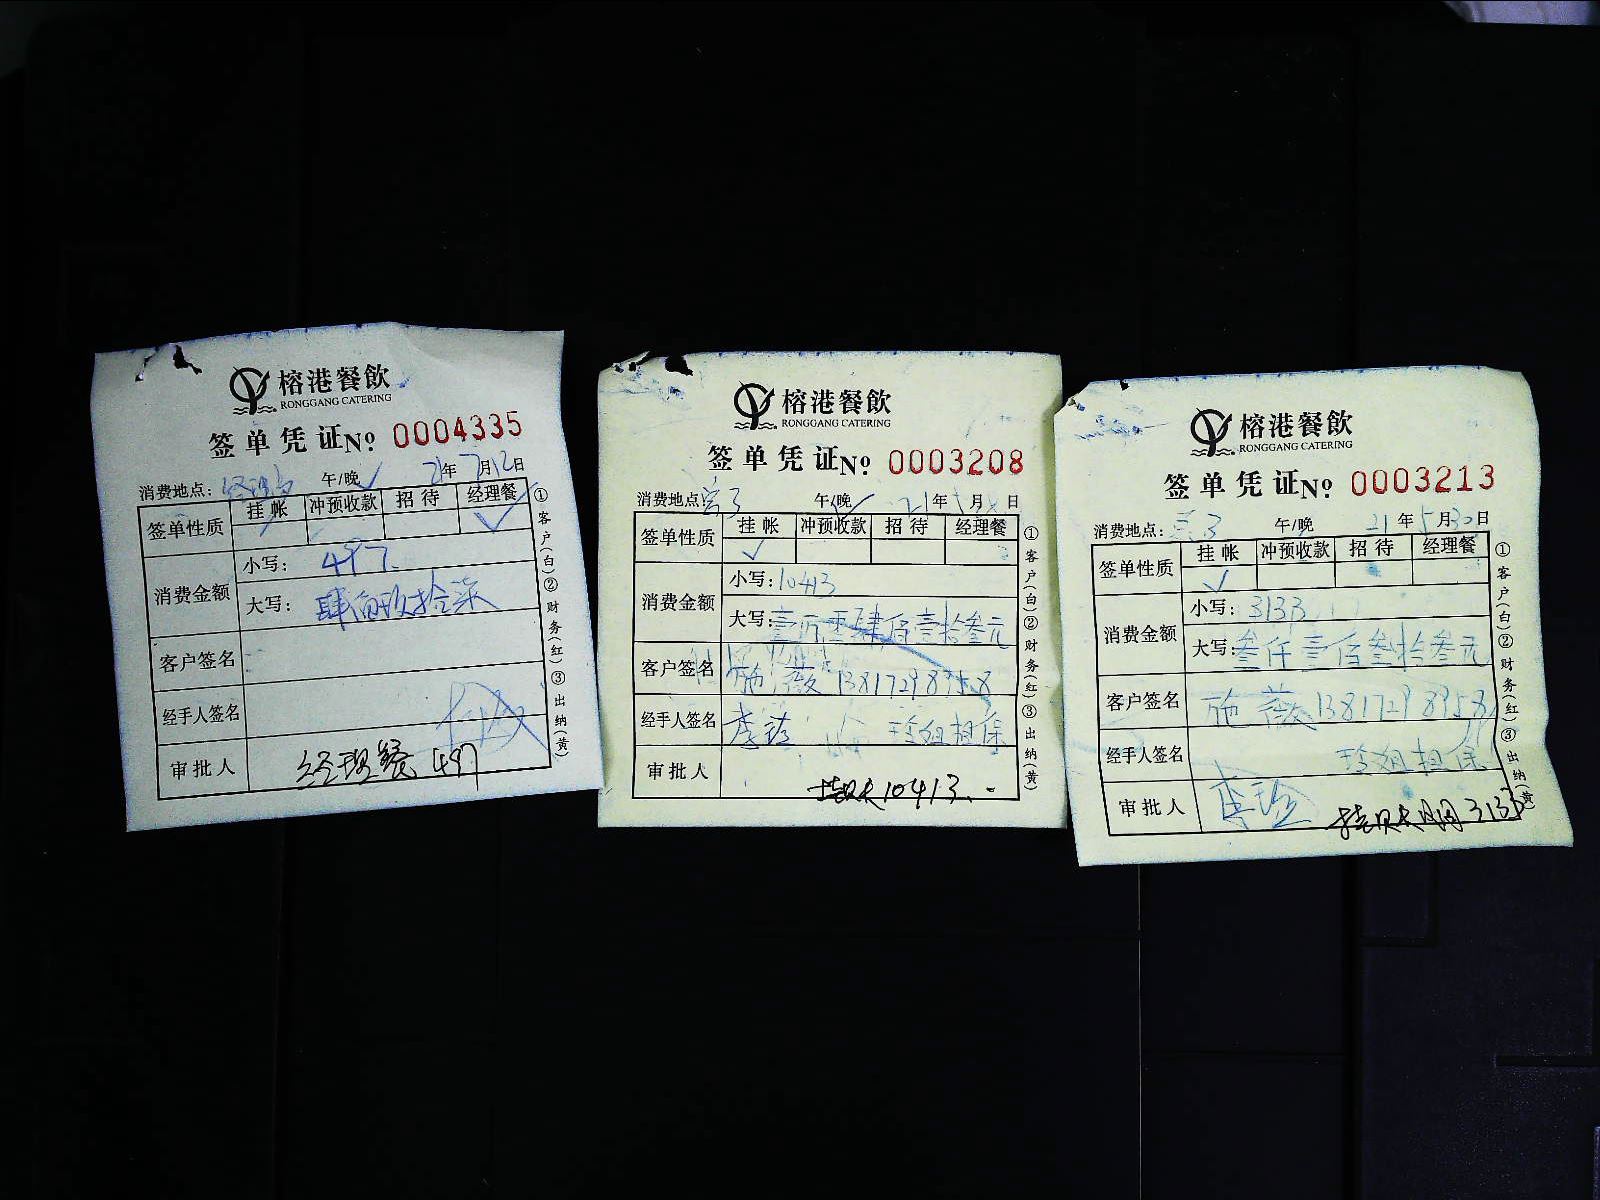 榕港餐飲
RONGGANG CATERING
签单凭证№ 0004335
消费地点: 午/晚 21年7月12日
签单性质 挂帐 冲预收款 招待 经理餐
消费金额 小写: 497.
大写: 肆佰玖拾柒
客户签名
经手人签名
审批人 经理餐 497
①客户(白)②财务(红)③出纳(黄)
榕港餐飲
RONGGANG CATERING
签单凭证№ 0003208
消费地点: 午/晚 21年5月 日
签单性质 挂帐 冲预收款 招待 经理餐
消费金额 小写: 10413
大写: 零肆佰壹拾叁元
客户签名 施薇 13817298958
经手人签名 李 玲姐担保
审批人 10413.
①客户(白)②财务(红)③出纳(黄)
榕港餐飲
RONGGANG CATERING
签单凭证№ 0003213
消费地点: 午/晚 21年5月30日
签单性质 挂帐 冲预收款 招待 经理餐
消费金额 小写: 3133
大写: 叁仟壹佰叁拾叁元
客户签名 施薇 13817298958
经手人签名 玲姐担保
审批人 李 3133
①客户(白)②财务(红)③出纳(黄)